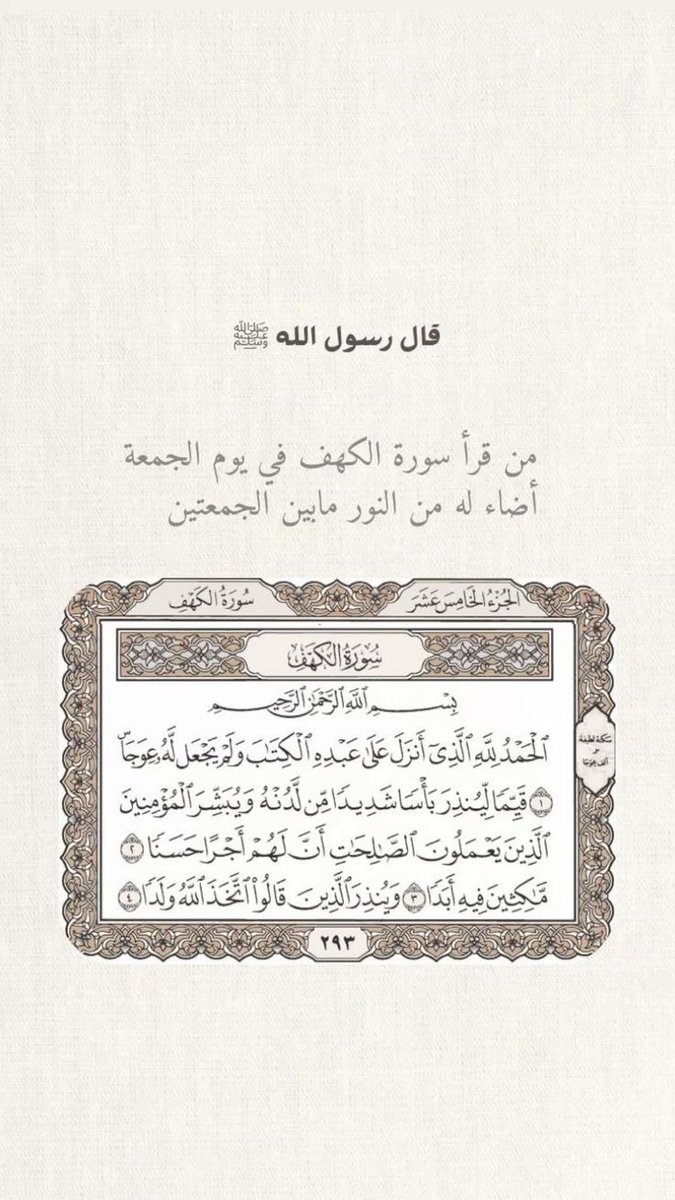 قال رسول الله ﷺ
من قرأ سورة الكهف في يوم الجمعة
أضاء له من النور مابين الجمعتين
الجُزْءُ الخَامِسَ عَشَرَ
سُورَةُ الكَهْفِ
سُورَةُ الكَهْفِ
بِسْمِ ٱللَّهِ ٱلرَّحْمَٰنِ ٱلرَّحِيمِ
ٱلْحَمْدُ لِلَّهِ ٱلَّذِىٓ أَنزَلَ عَلَىٰ عَبْدِهِ ٱلْكِتَٰبَ وَلَمْ يَجْعَل لَّهُۥ عِوَجَاۜ
١ قَيِّمًا لِّيُنذِرَ بَأْسًا شَدِيدًا مِّن لَّدُنْهُ وَيُبَشِّرَ ٱلْمُؤْمِنِينَ
ٱلَّذِينَ يَعْمَلُونَ ٱلصَّٰلِحَٰتِ أَنَّ لَهُمْ أَجْرًا حَسَنًا ٢
مَّٰكِثِينَ فِيهِ أَبَدًا ٣ وَيُنذِرَ ٱلَّذِينَ قَالُوا۟ ٱتَّخَذَ ٱللَّهُ وَلَدًا ٤
سكتة لطيفة
ألف عوجا
٢٩٣